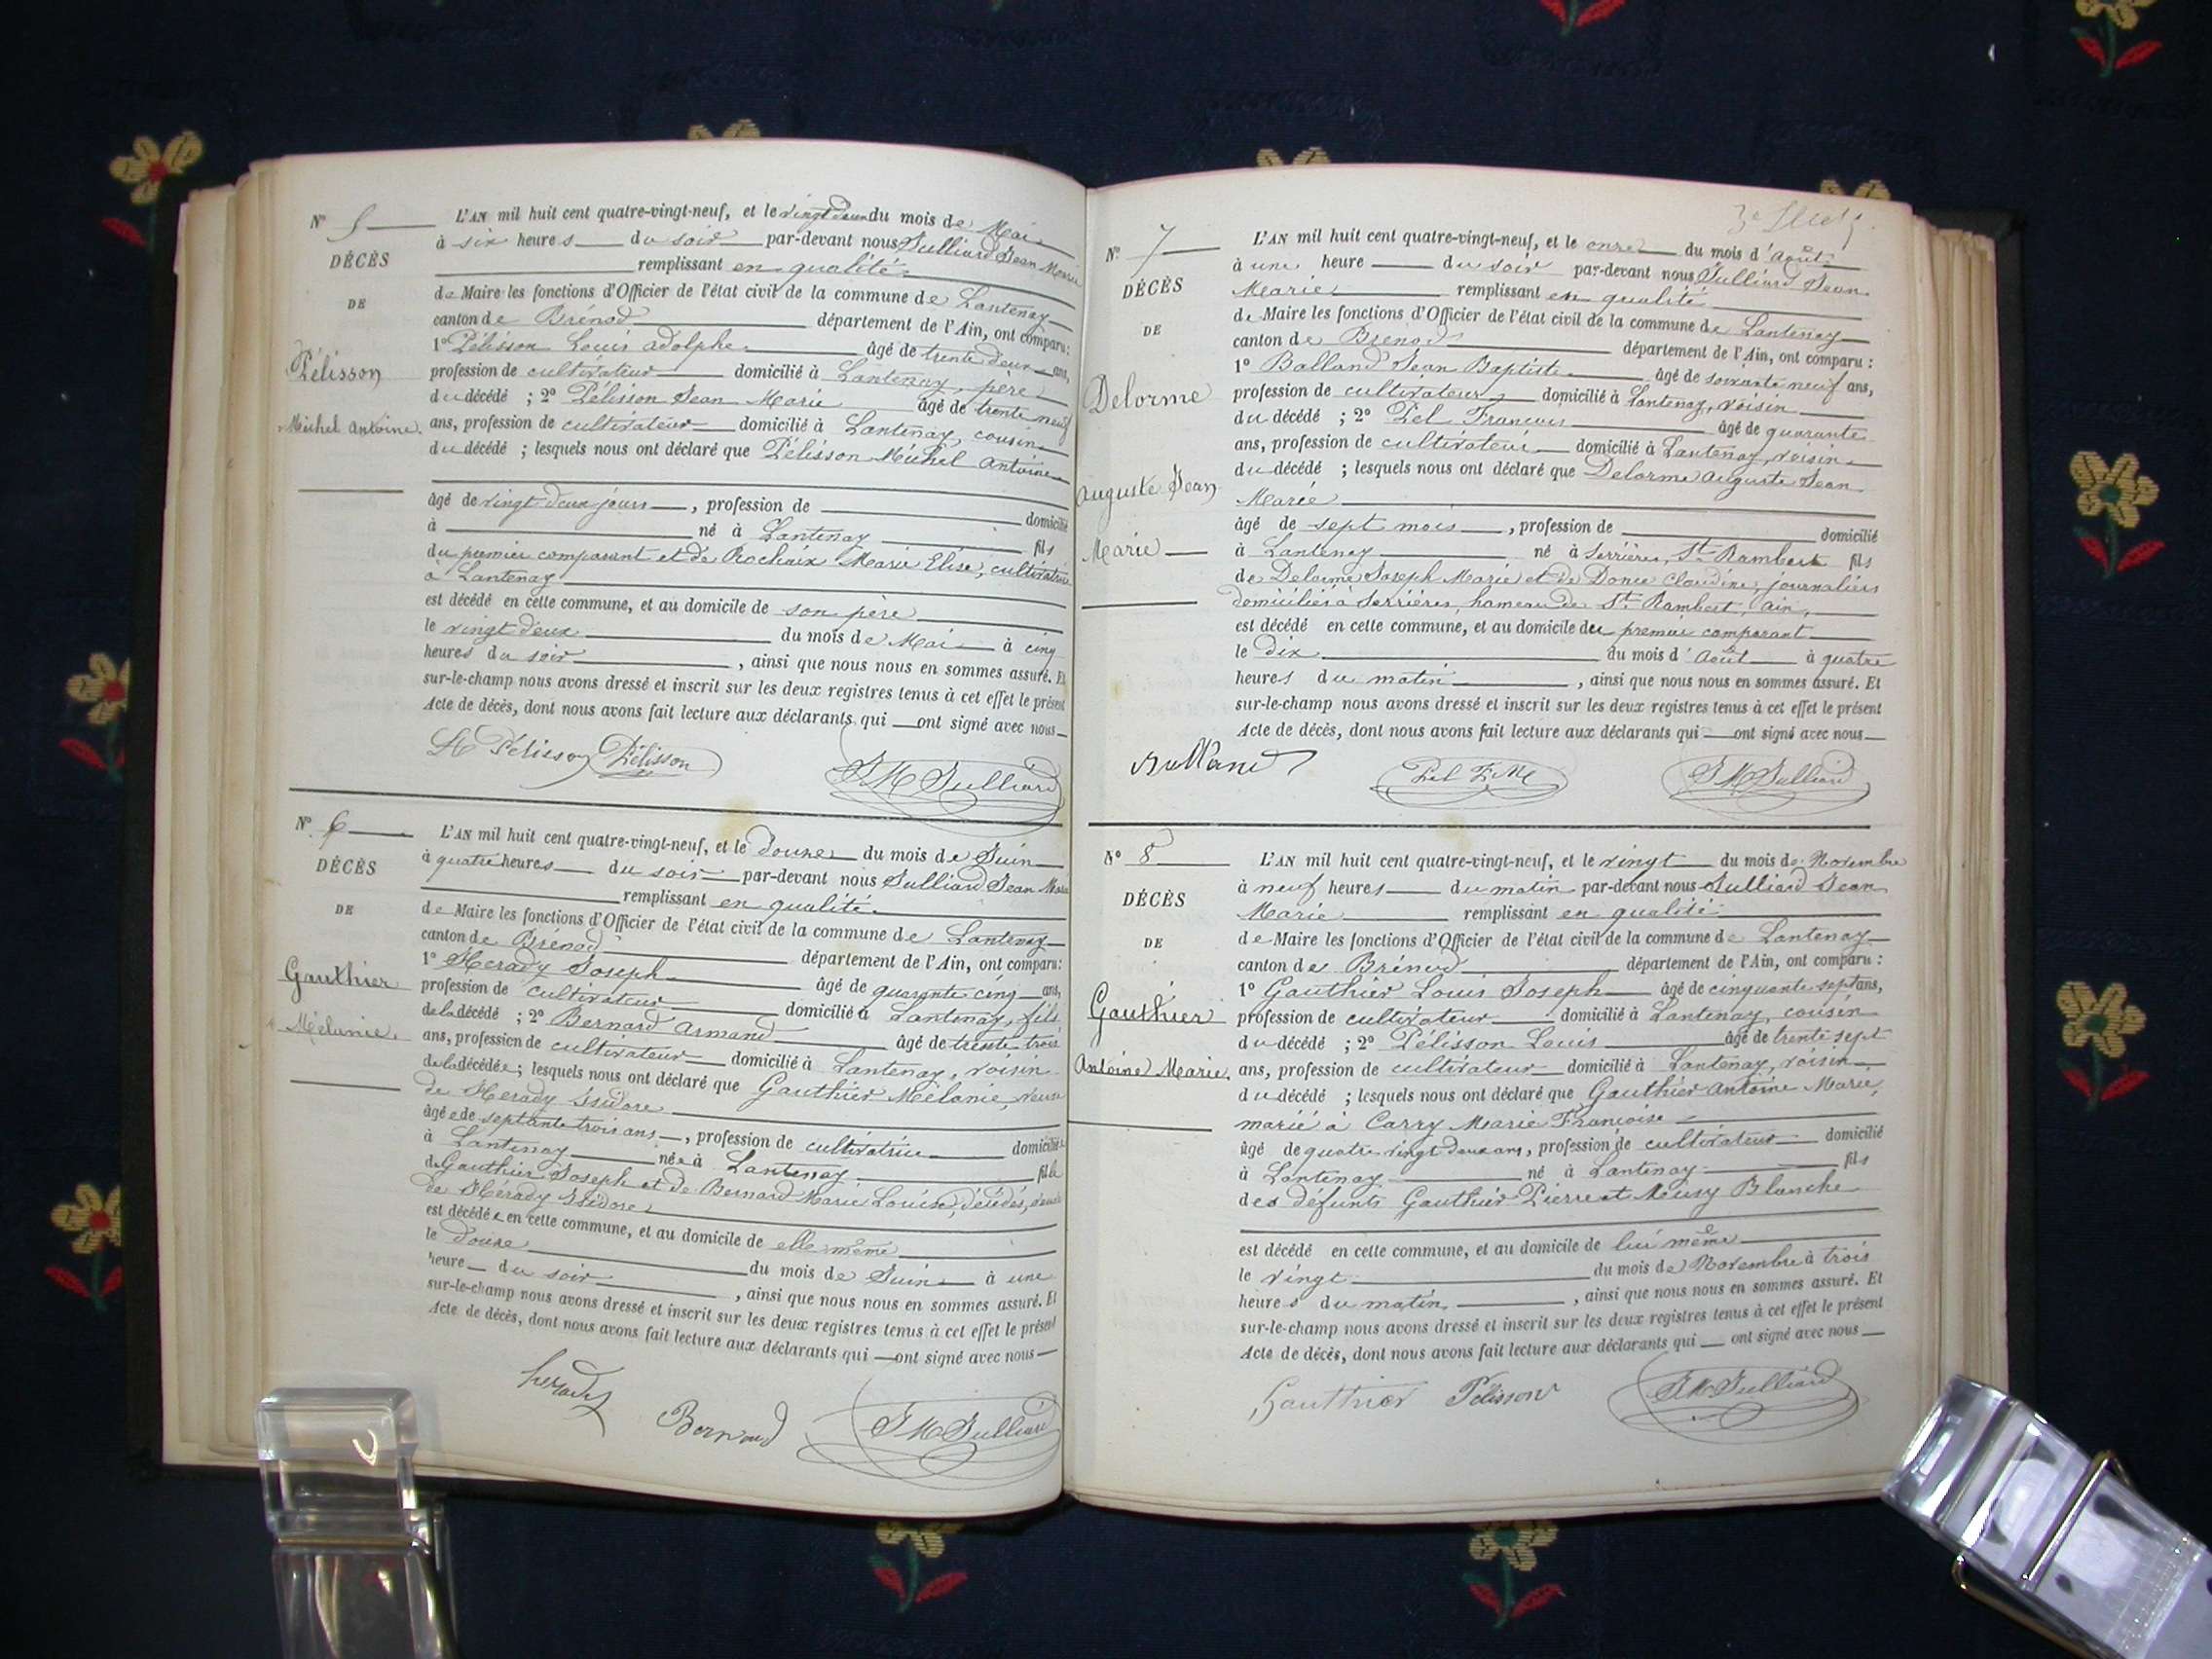 N° 5
DÉCÈS
DE
Pélisson
Michel Antoine.
L'AN mil huit cent quatre-vingt-neuf, et le vingt deux du mois de Mai
à six heures du soir par-devant nous Julliard Jean Marie
remplissant en qualité
de Maire les fonctions d'Officier de l'état civil de la commune de Lantenay
canton de Brénod département de l'Ain, ont comparu :
1° Pélisson Louis adolphe âgé de trente deux ans,
profession de cultivateur domicilié à Lantenay, père
du décédé ; 2° Pélisson Jean Marie âgé de trente neuf
ans, profession de cultivateur domicilié à Lantenay, cousin
du décédé ; lesquels nous ont déclaré que Pélisson Michel Antoine
âgé de vingt deux jours, profession de domicilié
à né à Lantenay fils
du premier comparant et de Rochaix Marie Elise, cultivatrice
à Lantenay
est décédé en cette commune, et au domicile de son père
le vingt deux du mois de Mai à cinq
heures du soir, ainsi que nous nous en sommes assuré. Et
sur-le-champ nous avons dressé et inscrit sur les deux registres tenus à cet effet le présent
Acte de décès, dont nous avons fait lecture aux déclarants qui ont signé avec nous
Pélisson Pélisson JM Julliard
N° 6
DÉCÈS
DE
Gauthier
Mélanie.
L'AN mil huit cent quatre-vingt-neuf, et le douze du mois de Juin
à quatre heures du soir par-devant nous Julliard Jean Marie
remplissant en qualité
de Maire les fonctions d'Officier de l'état civil de la commune de Lantenay
canton de Brénod département de l'Ain, ont comparu :
1° Herady Joseph âgé de quarante cinq ans,
profession de cultivateur domicilié à Lantenay, fils
de la décédé ; 2° Bernard Armand âgé de trente trois
ans, profession de cultivateur domicilié à Lantenay, voisin
de la décédée ; lesquels nous ont déclaré que Gauthier Mélanie, veuve
de Herady Isidore
âgée de septante trois ans, profession de cultivatrice domiciliée
à Lantenay née à Lantenay fille
de Gauthier Joseph et de Bernard Marie Louise, décédés, veuve
de Hérady Isidore
est décédée en cette commune, et au domicile de elle même
le douze du mois de Juin à une
heure du soir, ainsi que nous nous en sommes assuré. Et
sur-le-champ nous avons dressé et inscrit sur les deux registres tenus à cet effet le présent
Acte de décès, dont nous avons fait lecture aux déclarants qui ont signé avec nous
herady Bernard JM Julliard
N° 7
DÉCÈS
DE
Delorme
Auguste Jean
Marie
L'AN mil huit cent quatre-vingt-neuf, et le onze du mois d'Août
à une heure du soir par-devant nous Julliard Jean
Marie remplissant en qualité
de Maire les fonctions d'Officier de l'état civil de la commune de Lantenay
canton de Brénod département de l'Ain, ont comparu :
1° Balland Jean Baptiste âgé de soixante neuf ans,
profession de cultivateur domicilié à Lantenay, voisin
du décédé ; 2° Pel François âgé de quarante
ans, profession de cultivateur domicilié à Lantenay, voisin
du décédé ; lesquels nous ont déclaré que Delorme Auguste Jean
Marie
âgé de sept mois, profession de domicilié
à Lantenay né à Serrières, St Rambert fils
de Delorme Joseph Marie et de Donce Claudine, journaliers
domiciliés à Serrières, hameau de St Rambert, ain,
est décédé en cette commune, et au domicile du premier comparant
le dix du mois d'Août à quatre
heures du matin, ainsi que nous nous en sommes assuré. Et
sur-le-champ nous avons dressé et inscrit sur les deux registres tenus à cet effet le présent
Acte de décès, dont nous avons fait lecture aux déclarants qui ont signé avec nous
Balland Pel F.M JM Julliard
N° 8
DÉCÈS
DE
Gauthier
Antoine Marie.
L'AN mil huit cent quatre-vingt-neuf, et le vingt du mois de Novembre
à neuf heures du matin par-devant nous Julliard Jean
Marie remplissant en qualité
de Maire les fonctions d'Officier de l'état civil de la commune de Lantenay
canton de Brénod département de l'Ain, ont comparu :
1° Gauthier Louis Joseph âgé de cinquante sept ans,
profession de cultivateur domicilié à Lantenay, cousin
du décédé ; 2° Pélisson Louis âgé de trente sept
ans, profession de cultivateur domicilié à Lantenay, voisin
du décédé ; lesquels nous ont déclaré que Gauthier Antoine Marie,
marié à Carry Marie Françoise
âgé de quatre vingt deux ans, profession de cultivateur domicilié
à Lantenay né à Lantenay fils
des défunts Gauthier Pierre et Meusy Blanche
est décédé en cette commune, et au domicile de lui même
le vingt du mois de Novembre à trois
heures du matin, ainsi que nous nous en sommes assuré. Et
sur-le-champ nous avons dressé et inscrit sur les deux registres tenus à cet effet le présent
Acte de décès, dont nous avons fait lecture aux déclarants qui ont signé avec nous
Gauthier Pélisson JM Julliard